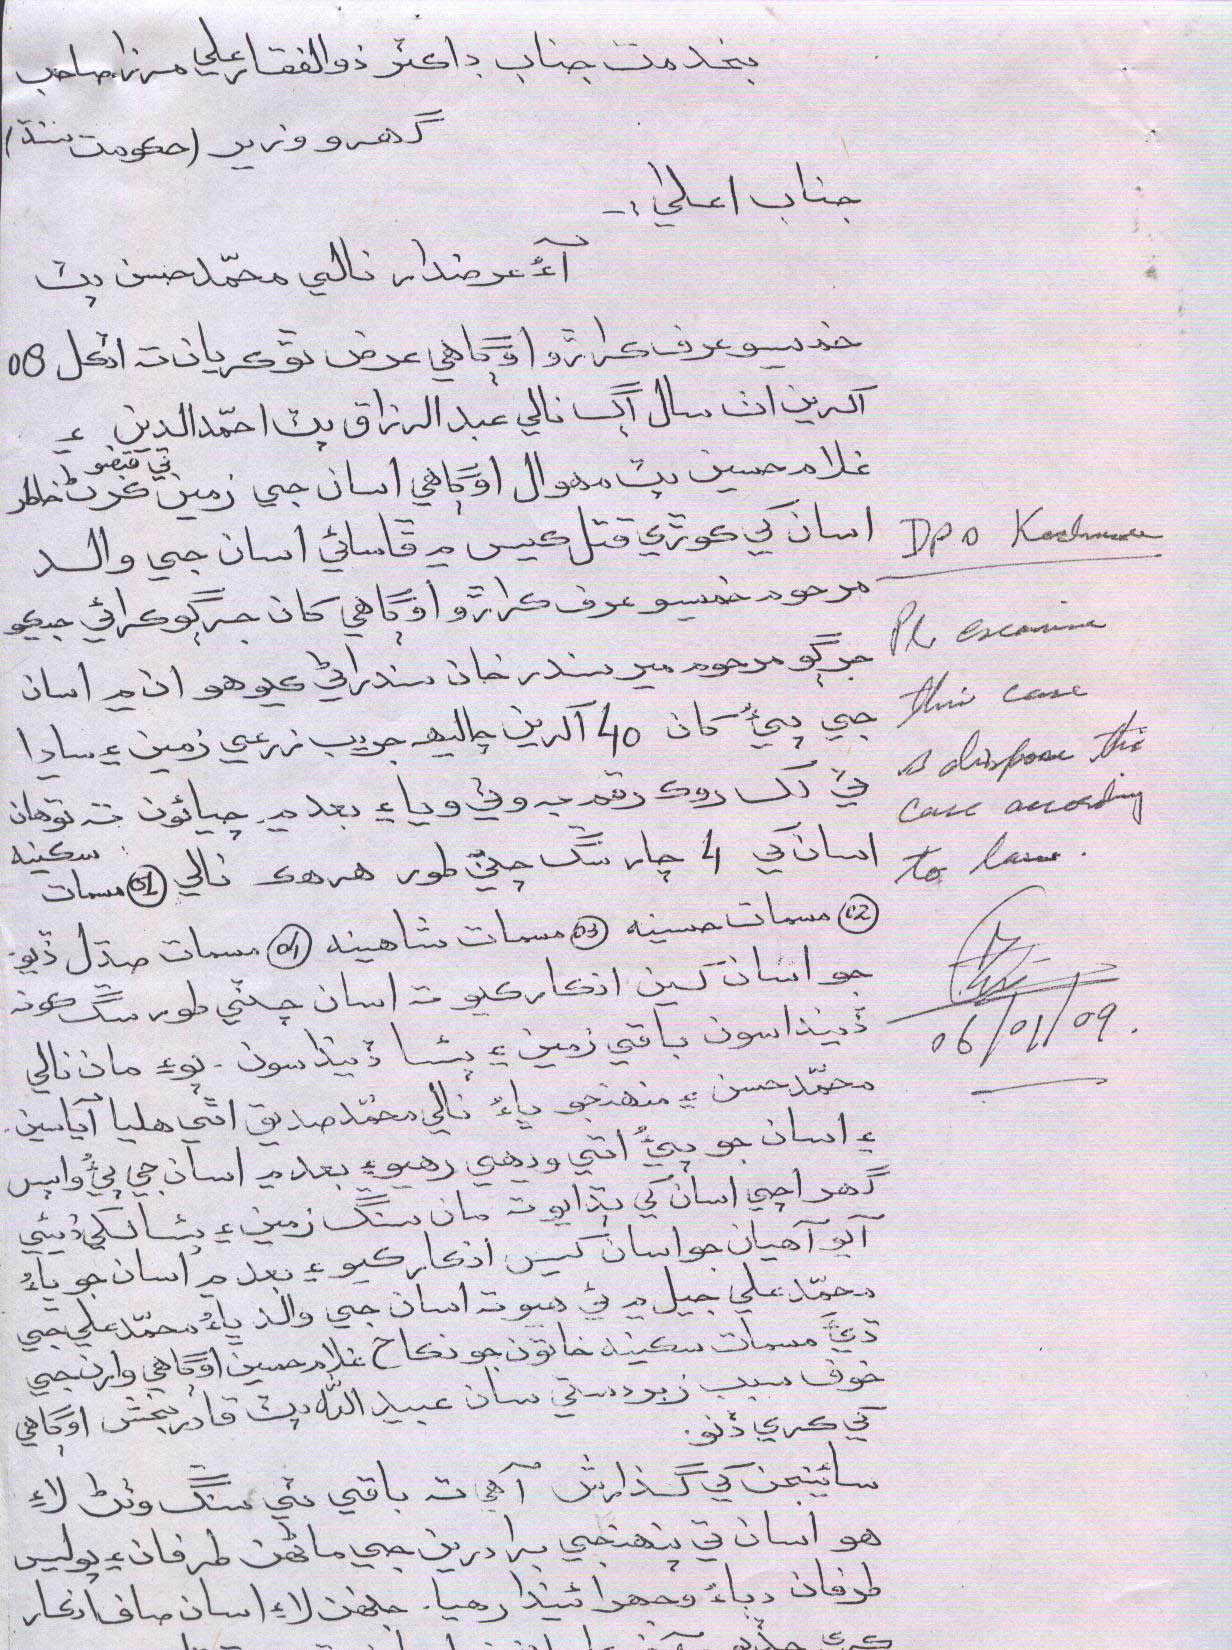 بخدمت جناب ڊاڪٽر ذوالفقار علي مرزا صاحب
گهرو وزير (حڪومت سنڌ)
جناب اعليٰ :-
آءٌ عرضدار نالي محمّد حسن پٽ
خميسو عرف ڪراڙو اوڳاهي عرض ٿو ڪريان ته اٽڪل 08
اٺ سال اڳ نالي عبدالرزاق پٽ احمّدالدين ۽
غلام حسين پٽ مهوال اوڳاهي اسان جي زمين تي قبضو ڪرڻ خاطر
اسان کي ڪوڙي قتل ڪيس ۾ ڦاسائي اسان جي والد
مرحوم خميسو عرف ڪراڙو اوڳاهي کان جرڳو ڪرائي جيڪو
جرڳو مرحوم مير سندر خان سندراڻي ڪيو هو ان ۾ اسان
جي پيءُ کان 40 چاليهه جريب زرعي زمين ۽ ساڍا
ٽي لک روڪ رقم به وٺي ويا ۽ بعد ۾ چيائون ته توهان
اسان کي 4 چار سڱ چٽي طور هر هڪ نالي 01 مسمات سڪينه
02 مسمات حسينه 03 مسمات شاهينه 04 مسمات صدل ڏيو.
جو اسان کين انڪار ڪيو ته اسان چٽي طور سڱ ڪونه
ڏينداسون باقي زمين ۽ پئسا ڏينداسون. پوءِ مان نالي
محمّد حسن ۽ منهنجو ڀاءُ نالي محمّد صديق اٿي هليا آياسين.
۽ اسان جو پيءُ اتي ويهي رهيو ۽ بعد ۾ اسان جي پيءُ واپس
گهر اچي اسان کي ٻڌايو ته مان سڱ زمين ۽ پئسا لکي ڏيئي
آيو آهيان جو اسان کيس انڪار ڪيو ۽ بعد ۾ اسان جو ڀاءُ
محمّد علي جيل ۾ ئي هيو ته اسان جي والد ڀاءُ محمّد علي جي
ڌيءَ مسمات سڪينه خاتون جو نڪاح غلام حسين اوڳاهي وارن جي
خوف سبب زبردستي سان عبيدالله پٽ قادر بخش اوڳاهي
کي ڪري ڏنو.
سائينجن کي گذارش آهي ته باقي ٽي سڱ وٺڻ لاءِ
هو اسان تي پنهنجي برادرين جي ماڻهن طرفان ۽ پوليس
طرفان دباءُ وجهرائيندا رهيا. جنهن لاءِ اسان صاف انڪار
DPO Kashmore
Pl. examine
this case
& dispose the
case according
to law.
06/01/09.